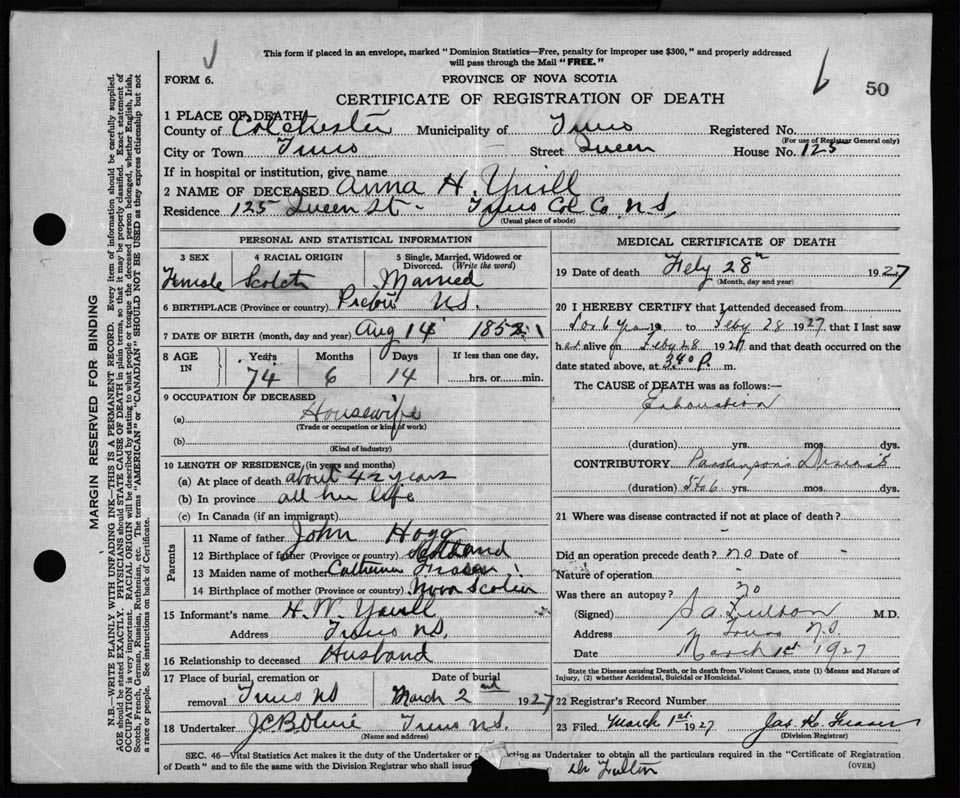 This form if placed in an envelope, marked "Dominion Statistics—Free, penalty for improper use $300," and properly addressed
will pass through the Mail "FREE."
FORM 6.
PROVINCE OF NOVA SCOTIA
50
CERTIFICATE OF REGISTRATION OF DEATH
1 PLACE OF DEATH
County of Colchester Municipality of Truro Registered No.
(For use of Registrar General only)
City or Town Truro Street Queen House No. 125
If in hospital or institution, give name
2 NAME OF DECEASED Anna H. Yuill
Residence 125 Queen St - Truro Col Co. N.S.
(Usual place of abode)
PERSONAL AND STATISTICAL INFORMATION
3 SEX 4 RACIAL ORIGIN 5 Single, Married, Widowed or
Divorced. (Write the word)
Female Scotch Married
6 BIRTHPLACE (Province or country) Pictou N.S.
7 DATE OF BIRTH (month, day and year) Aug 14 1852
8 AGE IN Years Months Days If less than one day,
74 6 14 hrs. or min.
9 OCCUPATION OF DECEASED
(a) Housewife
(Trade or occupation or kind of work)
(b)
(Kind of industry)
10 LENGTH OF RESIDENCE (in years and months)
(a) At place of death about 42 years
(b) In province all her life
(c) In Canada (if an immigrant)
Parents
11 Name of father John Hogg
12 Birthplace of father (Province or country) Scotland
13 Maiden name of mother Catherine Fraser
14 Birthplace of mother (Province or country) Nova Scotia
15 Informant's name H. W. Yuill
Address Truro N.S.
16 Relationship to deceased Husband
17 Place of burial, cremation or Date of burial
removal Truro NS March 2nd 1927
18 Undertaker J C B Olive Truro N.S.
(Name and address)
MEDICAL CERTIFICATE OF DEATH
19 Date of death Feby 28th 1927
(Month, day and year)
20 I HEREBY CERTIFY that I attended deceased from
for 6 years to Feby 28 1927 that I last saw
her alive on Feby 28 1927 and that death occurred on the
date stated above, at 3.40 P. m.
The CAUSE of DEATH was as follows:—
Exhaustion
(duration) yrs. mos. dys.
CONTRIBUTORY Parkinson's Disease
(duration) 5 to 6 yrs. mos. dys.
21 Where was disease contracted if not at place of death?
Did an operation precede death? no Date of -
Nature of operation
Was there an autopsy? no
(Signed) S. A. Fulton M.D.
Address Truro N.S.
Date March 1st 1927
State the Disease causing Death, or in death from Violent Causes, state (1) Means and Nature of
Injury, (2) whether Accidental, Suicidal or Homicidal.
22 Registrar's Record Number
23 Filed March 1st. 1927 Jas. K. Fraser
(Division Registrar)
SEC. 46—Vital Statistics Act makes it the duty of the Undertaker or acting as Undertaker to obtain all the particulars required in the "Certificate of Registration
of Death" and to file the same with the Division Registrar who shall issue
Dr Fulton
(OVER)
MARGIN RESERVED FOR BINDING
N.B.—WRITE PLAINLY WITH UNFADING INK—THIS IS A PERMANENT RECORD. Every item of information should be carefully supplied.
AGE should be stated EXACTLY. PHYSICIANS should STATE CAUSE OF DEATH in plain terms, so that it may be properly classified. Exact statement of
OCCUPATION is very important. RACIAL ORIGIN will be described by stating to what people or tongue the deceased person belonged, whether English, Irish,
Scotch, French, German, Russian, Ruthenian, etc. The terms "AMERICAN" or "CANADIAN" SHOULD NOT BE USED as they express citizenship but not
a race or people. See instructions on back of Certificate.